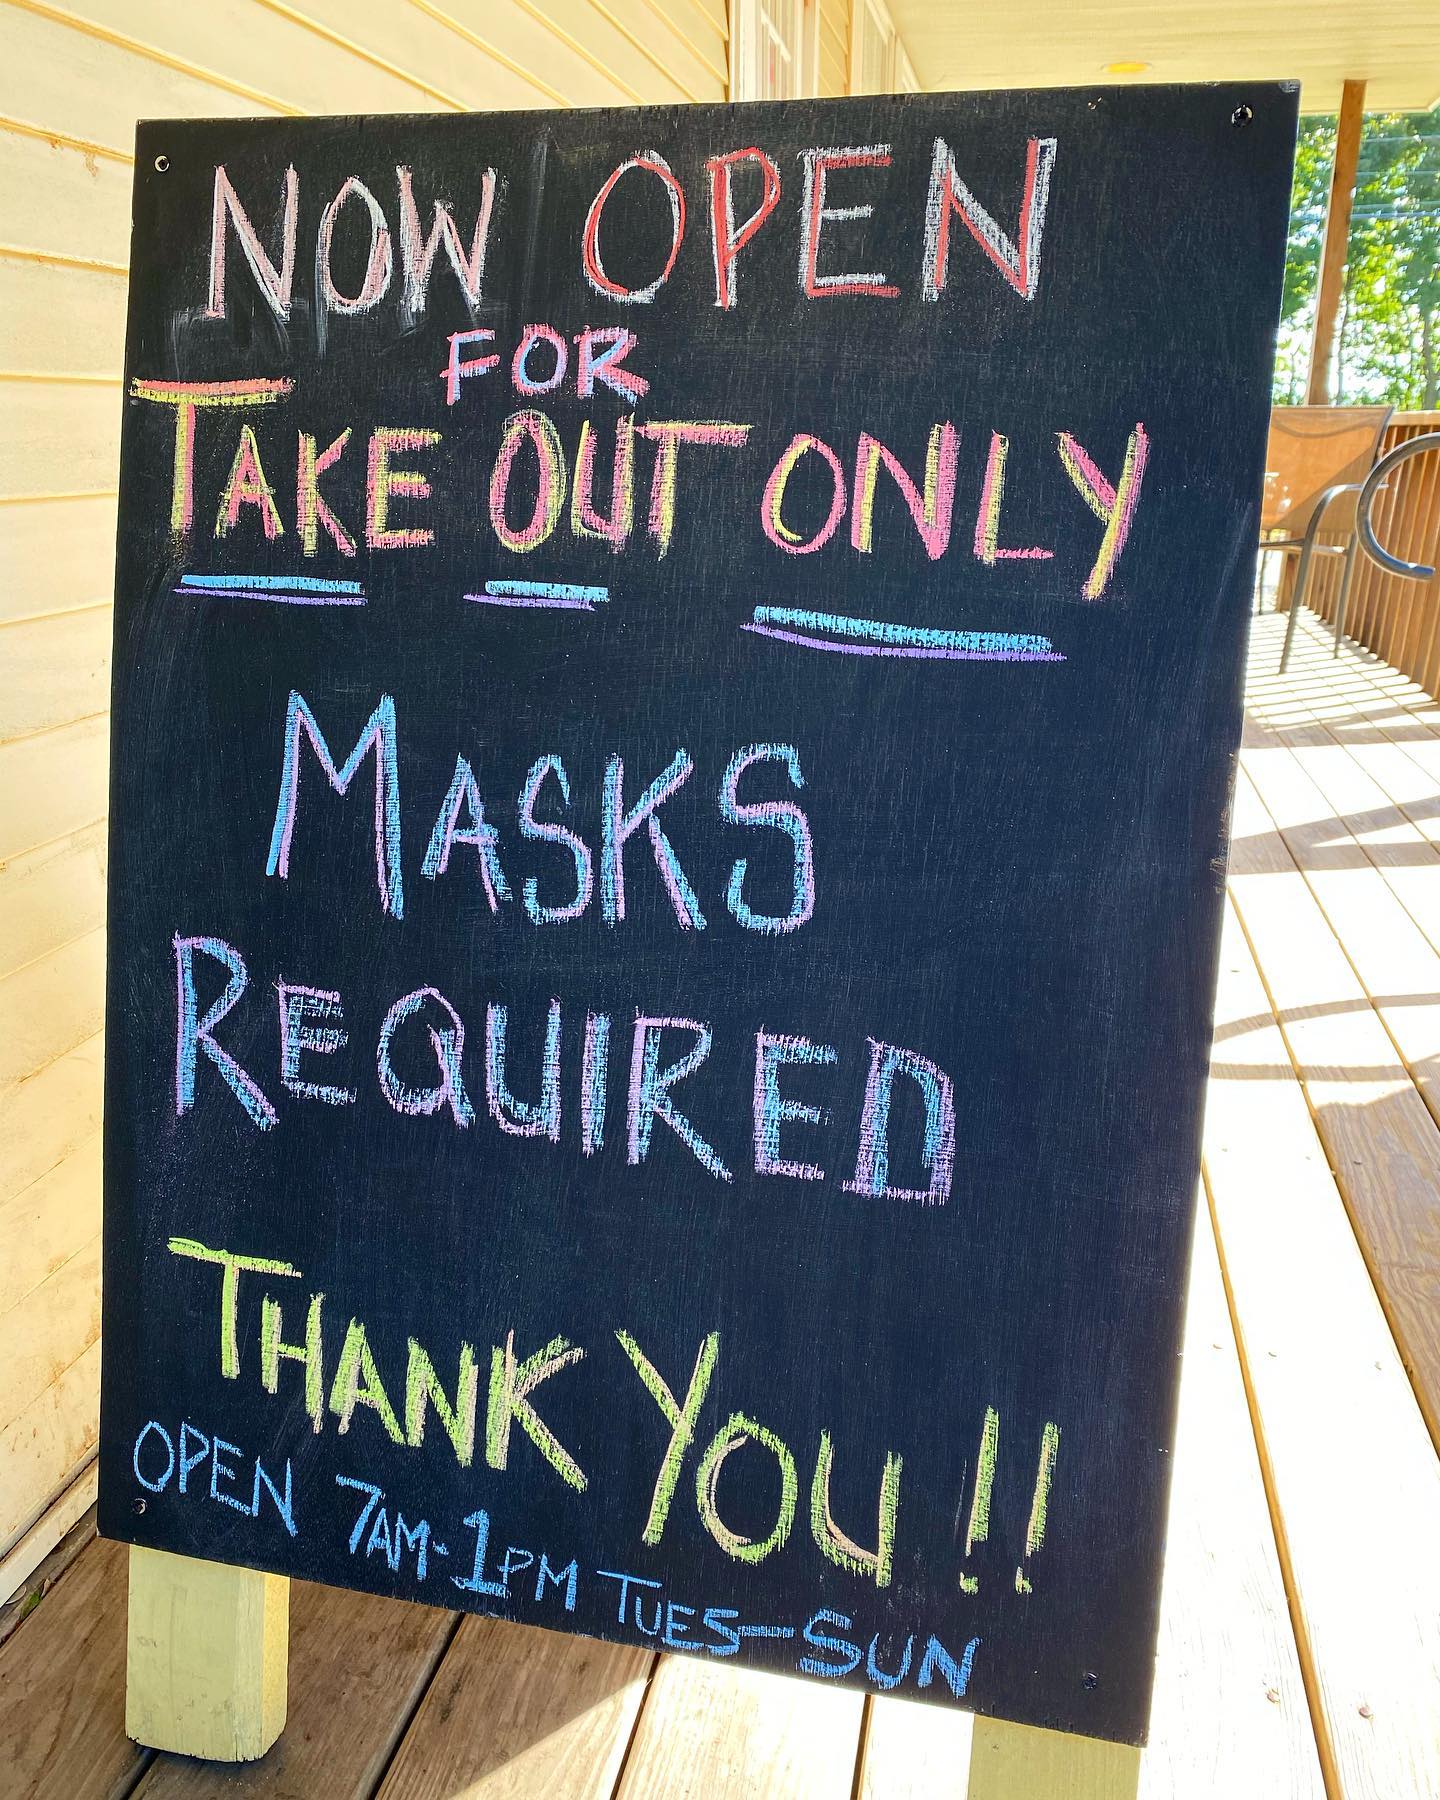 NOW OPEN
FOR
TAKE OUT ONLY
MASKS
REQUIRED
THANK YOU!!
OPEN 7AM-1PM TUES-SUN